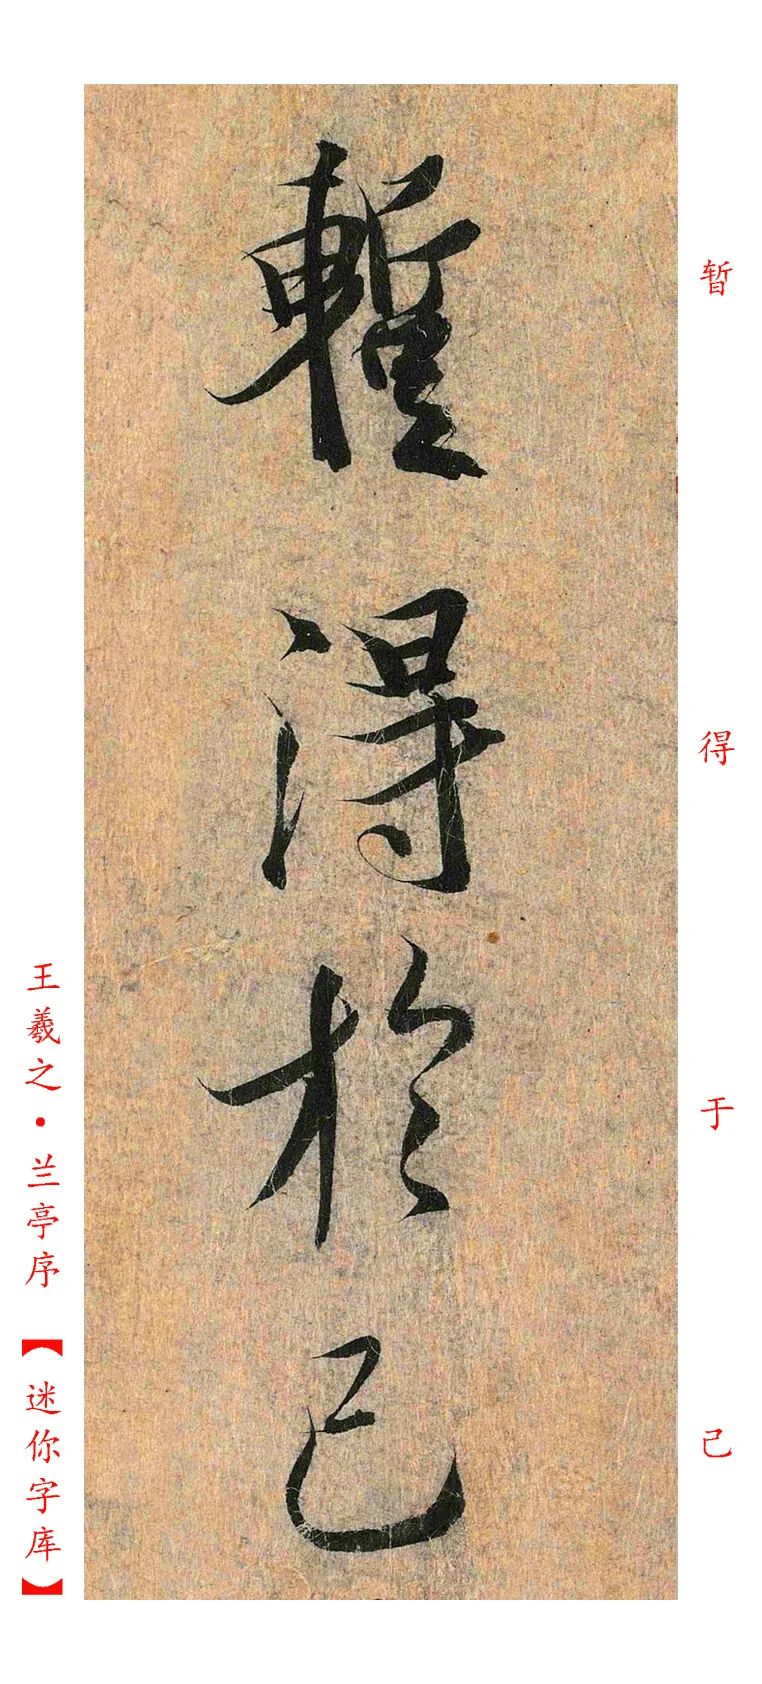 暫得於己
暂
得
于
己
王羲之·兰亭序【迷你字库】